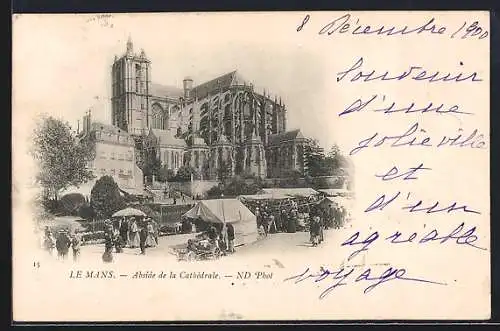 8 Décembre 1900
Souvenir
d'une
jolie ville
et
d'un
agréable
voyage
15 LE MANS. - Abside de la Cathédrale. - ND Phot